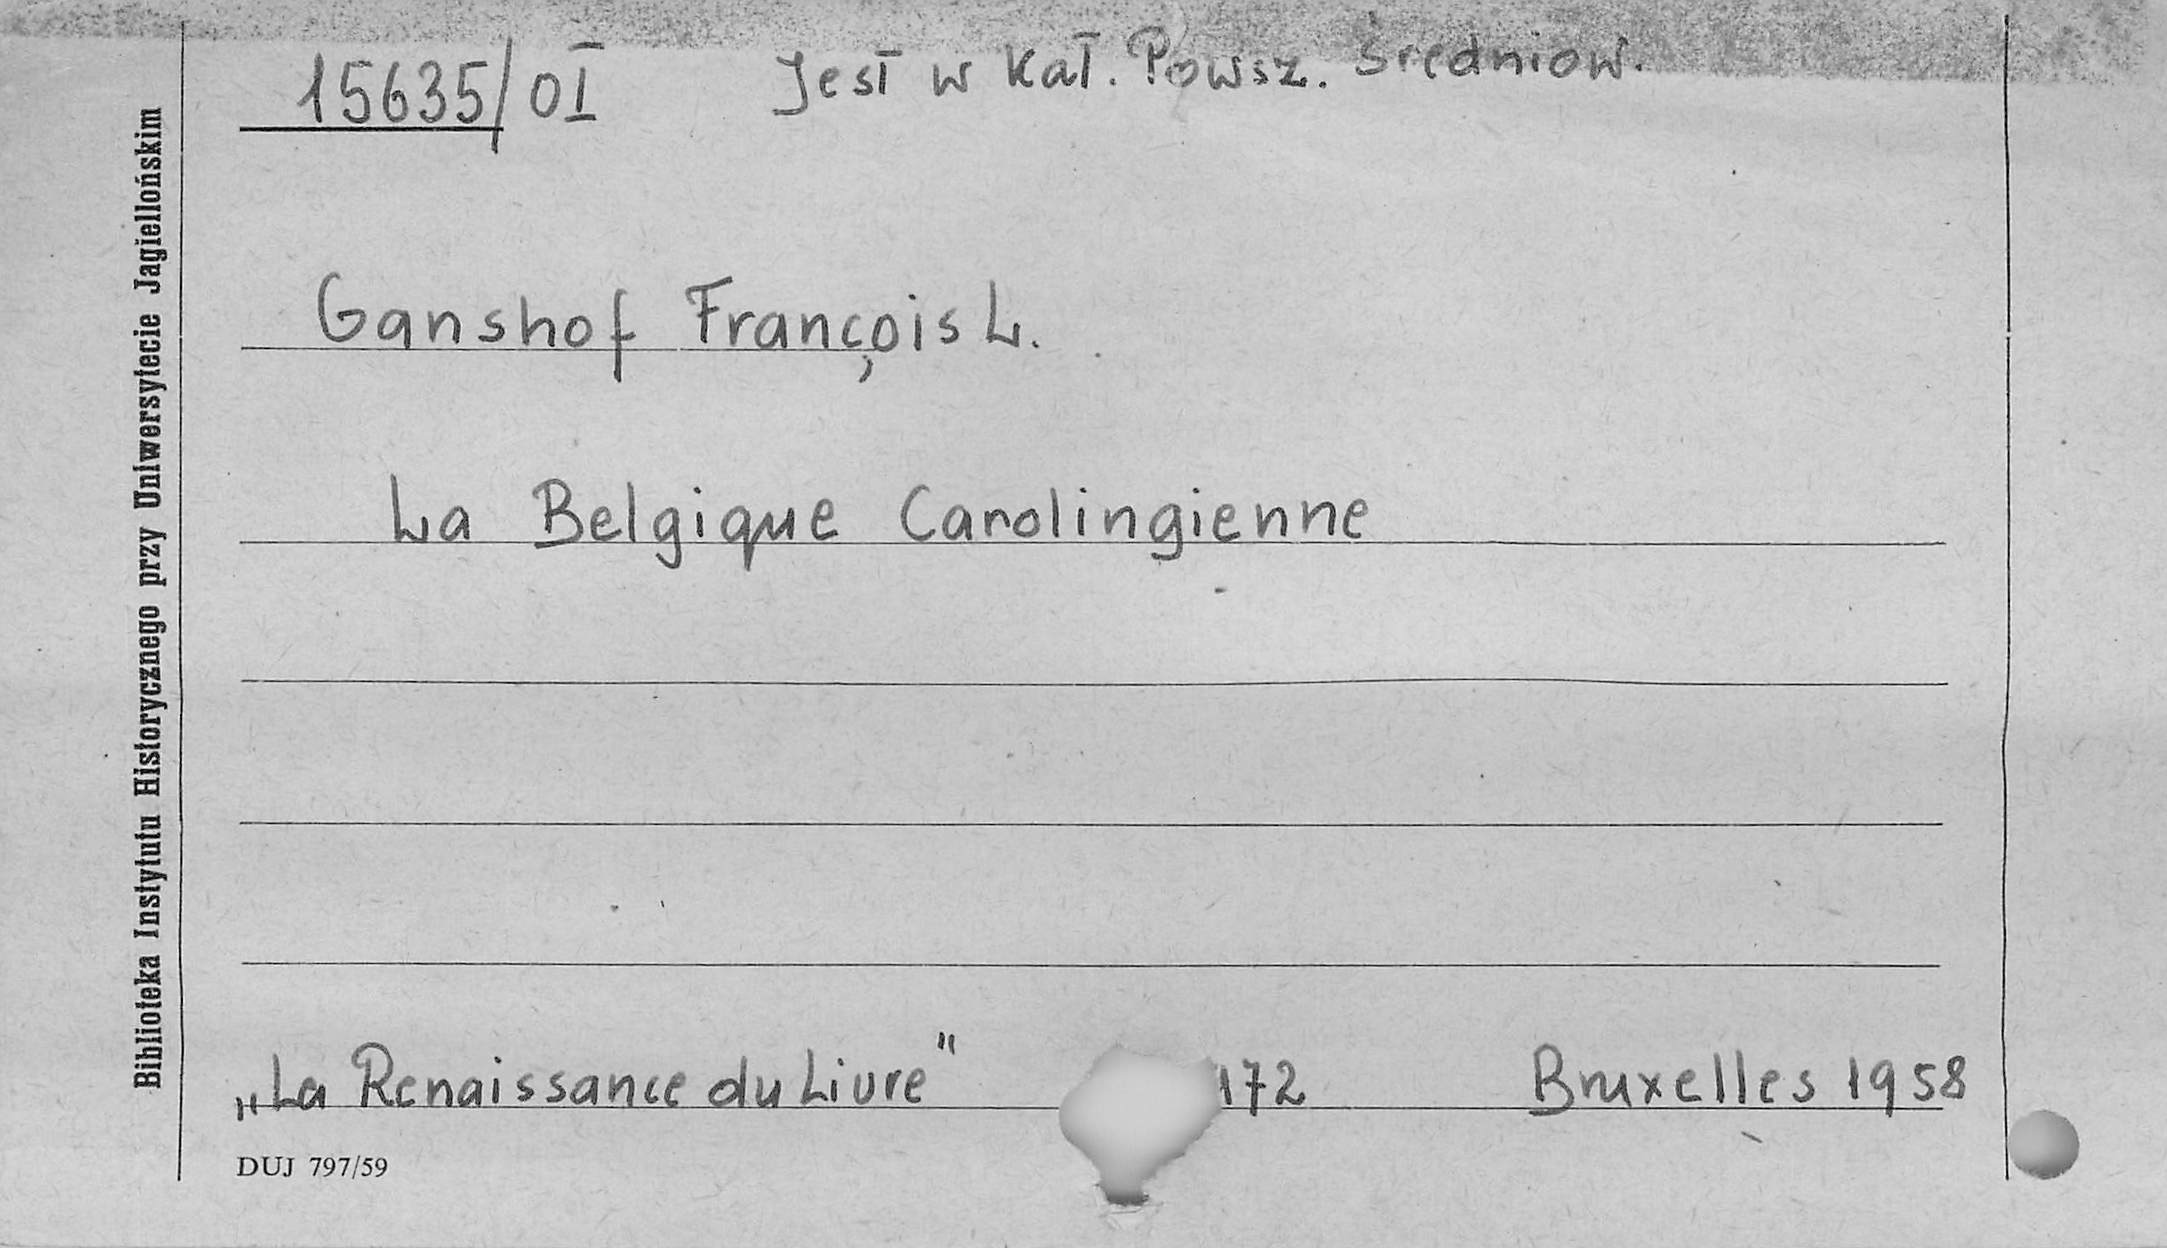 15635/OI Jest w Kat. Powsz. Średniow.
Biblioteka Instytutu Historycznego przy Uniwersytecie Jagiellońskim
Ganshof François L.
La Belgique Carolingienne
„La Renaissance du Livre” 172 Bruxelles 1958
DUJ 797/59